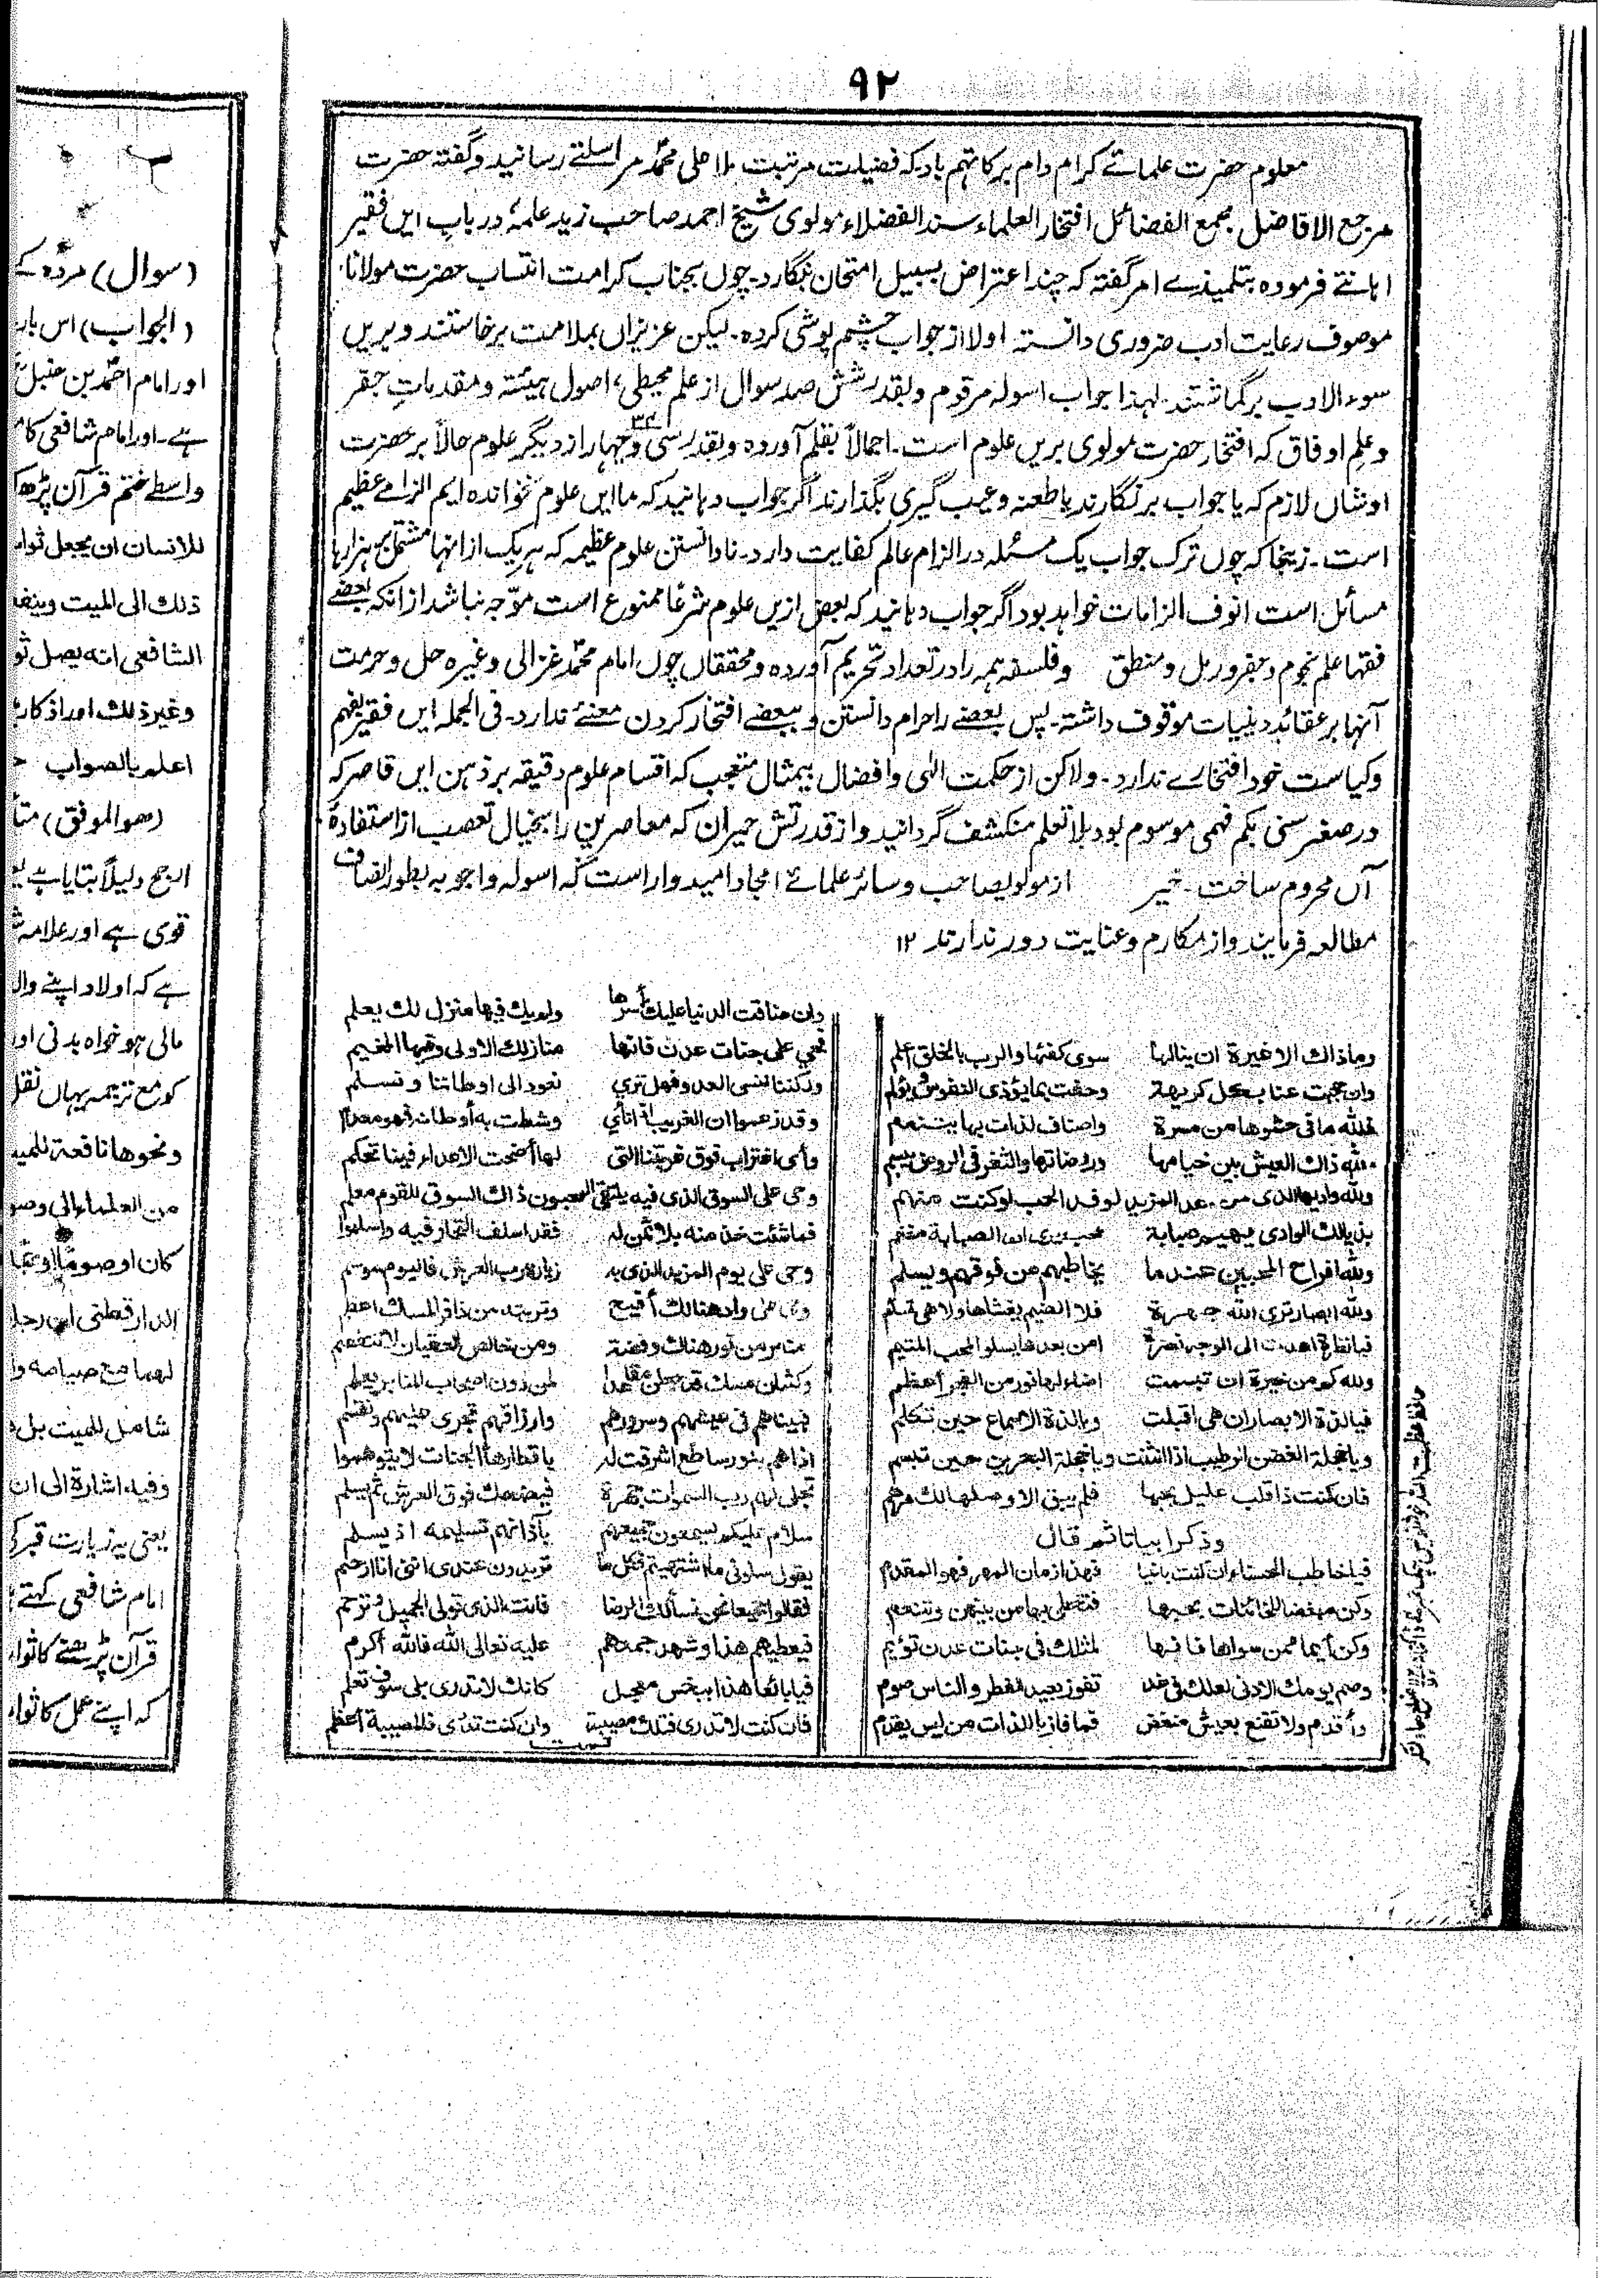 ۹۲
معلوم حضرت علمائے کرام دام برکاتہم باد کہ فضیلت مرتبت ملا علی محمد مراسلتے رسانید و گفتہ حضرت
مرجع الافاضل مجمع الفضائل افتخار العلماء سند الفضلاء مولوی شیخ احمد صاحب زید علمہ در باب ایں فقیر
اہانتے فرمودہ بتلمیذے امر گفتہ کہ چند اعتراض بسبیل امتحان نگارد۔ چوں بجناب کرامت انتساب حضرت مولانا
موصوف رعایت ادب ضروری دانستہ اولا از جواب چشم پوشی کردہ۔ لیکن عزیزاں بملامت برخاستند و بریں
سوء الادب برگماشتند۔ لہذا جواب اسولہ مرقوم و بقدر شش صد سوال از علم محیطی، اصول ہیئتہ و مقدمات جفر
و علم اوفاق کہ افتخار حضرت مولوی بریں علوم است۔ اجمالاً بقلم آوردہ و بقدر سی وچہار از دیگر علوم حالاً بر حضرت
اوشاں لازم کہ یا جواب برنگارند یا طعنہ و عیب گیری بگذارند اگر جواب دہانید کہ ما ایں علوم نخواندہ ایم الزامے عظیم
است۔ زینجا کہ چوں ترک جواب یک مسئلہ در الزام عالم کفایت دارد۔ نادانستن علوم عظیمہ کہ ہریک ازانہا مشتمل بر ہزارہا
مسائل است انوف الزامات خواہد بود اگر جواب دہانید کہ بعض ازیں علوم شرعاً ممنوع است موجہ نباشد ازانکہ بعضے
فقہا علم نجوم و جفر و رمل و منطق و فلسفہ ہمہ را در تعداد تحریم آوردہ و محققاں چوں امام محمد غزالی وغیرہ حل و حرمت
آنہا بر عقائد و نیات موقوف داشتہ۔ پس بعضے را حرام دانستن و ببعضے افتخار کردن معنئے ندارد۔ فی الجملہ ایں فقیر بفہم
و کیاست خود افتخارے ندارد۔ ولاکن از حکمت الٰہی و افضال بیمثال متعجب کہ اقسام علوم دقیقہ بر ذہن ایں قاصر کہ
در صغر سنی بکم فہمی موسوم بود بلا تعلم منکشف گردانید و از قدرتش حیران کہ معاصرین را بخیال تعصب از استفادۂ
آں محروم ساخت۔ خیر از مولویصاحب و سائر علمائے امجاد امیدوار است کہ اسولہ و اجوبہ بطور انصاف
مطالعہ فرمایند و از مکارم و عنایت دور ندارند ۱۲
وما ذاك الا غيرة ان ينالها سوى كفئها والرب بالخلق اعلم
وان حجبت عنا بكل كريهة وحفت بما يؤذى النفوس ويؤلم
فلله ما فى حشوها من مسرة واصناف لذات بها يتنعم
ولله ذاك العيش بين خيامها وروضاتها والثغر فى الروض يبسم
ولله واديها الذى هو موعد المزيد لوفد الحب لو كنت منهم
بذيالك الوادى يهيم صبابة محب يرى ان الصبابة مغنم
ولله افراح المحبين عندما يخاطبهم من فوقهم ويسلم
ولله ابصار ترى الله جهرة فلا الضيم يغشاها ولا هى تسئم
فيا نظرة اهدت الى الوجه نضرة امن بعدها يسلو المحب المتيم
ولله كم من خيرة ان تبسمت اضاء لها نور من الفجر اعظم
فيا لذة الابصار ان هى اقبلت ويا لذة الاسماع حين تتكلم
ويا خجلة الغصن الرطيب اذا انثنت ويا خجلة البحرين حين تبسم
فان كنت ذا قلب عليل بحبها فلم يبق الا وصلها لك مرهم
وذكر ابياتا ثم قال
فيا خاطب الحسناء ان كنت باغيا فهذا زمان المهر فهو المقدم
وكن مبغضا للخائنات بحبها فتحظى بها من بينهن وتنعم
وكن أيما ممن سواها فانها لمثلك فى جنات عدن تؤيم
وصم يومك الادنى لعلك فى غد تفوز بعيد الفطر والناس صوم
وأقدم ولا تقنع بعيش منغص فما فاز باللذات من ليس يقدم
وان ضاقت الدنيا عليك بأسرها ولم يك فيها منزل لك يعلم
فحي على جنات عدن فانها منازلك الاولى وفيها المخيم
ولكننا نسبى العدو فهل ترى نعود الى اوطاننا ونسلم
وقد زعموا ان الغريب اذا نأي وشطت به أوطانه فهو مغرم
وأى اغتراب فوق غربتنا التى لها أضحت الاعداء فينا تحكم
وحى على السوق الذى فيه يلتقى المحبون ذاك السوق للقوم معلم
فما شئت خذ منه بلا ثمن له فقد اسلف التجار فيه واسلموا
وحى على يوم المزيد الذى به زيارة رب العرش فاليوم موسم
وحى على واد هنالك أفيح وتربته من ذاقر المسك اعظم
منابر من نور هناك وفضة ومن خالص العقيان لا تتفصم
وكثبان مسك قد جعلن مقاعدا لمن دون اصحاب المنابر يعلم
فبيناهم فى عيشهم وسرورهم وارزاقهم تجرى عليهم وتقسم
اذا هم بنور ساطع اشرقت له باقطارها الجنات لا يتوهموا
تجلى لهم رب السموات جهرة فيضحك فوق العرش ثم يسلم
سلام عليكم يسمعون جميعهم بآذانهم تسليمه اذ يسلم
يقول سلونى ما اشتهيتم فكل ما تريدون عندى اننى انا ارحم
فقالوا جميعا نحن نسألك الرضا فانت الذى تولى الجميل وترحم
فيعطيهم هذا ويشهد جمعهم عليه تعالى الله فالله أكرم
فيا بائعا هذا ببخس معجل كانك لا تدرى بلى سوف تعلم
فان كنت لا تدرى فتلك مصيبة وان كنت تدرى فالمصيبة أعظم
(سوال) مردہ کے
(الجواب) اس بار
اور امام احمد بن حنبل
ہے۔ اور امام شافعی کا
واسطے ختم قرآن پڑھ
للانسان ان يجعل ثوا
ذلك الى الميت وينف
الشافعى انه يصل ثو
وغير ذلك اور اذ کار
اعلم بالصواب
(ھو الموفق)
ارجح دلیلاً بتایا ہے
قوی ہے اور علامہ
ہے کہ اولاد اپنے وال
مالی ہو خواہ بدنی او
کو مع ترجمہ یہاں نقل
ونحوها نافعة للمي
من العلماء الى وصو
كان او صوما او
الدارقطنى ان رجلا
لهما مع صيامه وا
شامل للميت بل
وفيه اشارة الى ان
یعنی یہ زیارت قبر
امام شافعی کہتے
قرآن پڑھنے کا ثوا
کہ اپنے عمل کا ثوا